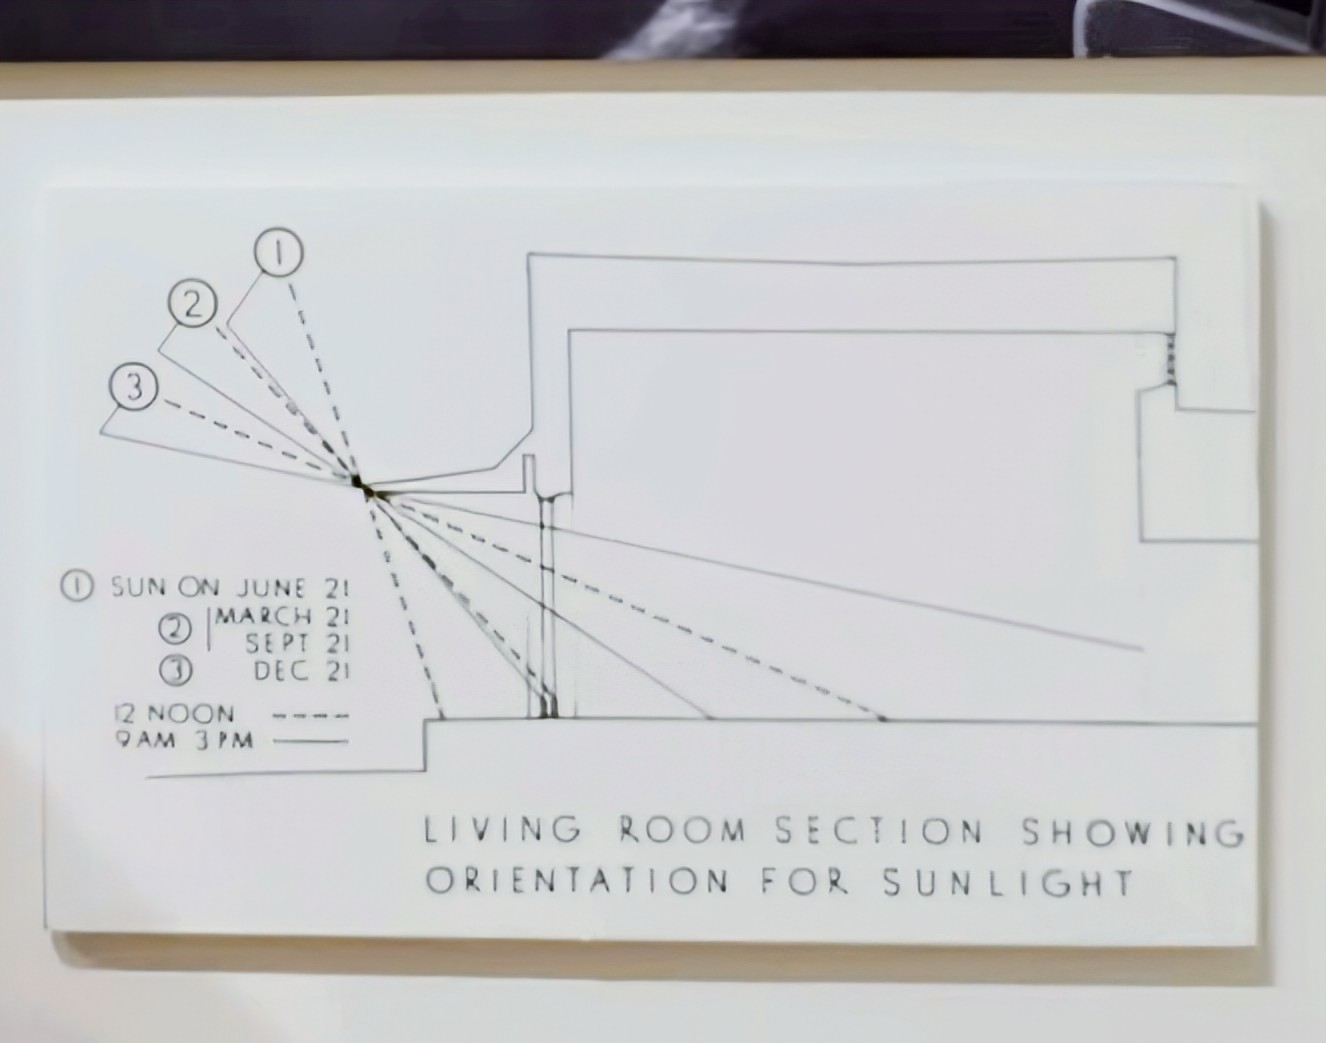 1
2
3
1 SUN ON JUNE 21
2 MARCH 21
SEPT 21
3 DEC 21
12 NOON
9AM 3PM
LIVING ROOM SECTION SHOWING
ORIENTATION FOR SUNLIGHT